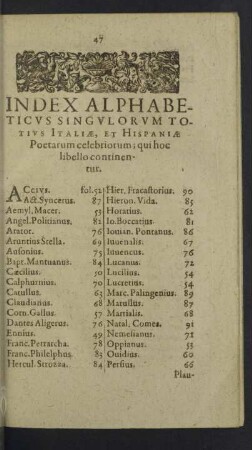 47
INDEX ALPHABE-
TICVS SINGVLORVM TO-
TIVS ITALIÆ, ET HISPANIÆ
Poetarum celebriorum; qui hoc
libello continen-
tur.
ACCIVS. fol.51
Act. Syncerus. 87
Aemyl. Macer. 55
Angel. Politianus. 81
Arator. 76
Aruntius Stella. 69
Ausonius. 75
Bapt. Mantuanus. 84
Cæcilius. 50
Calphurnius. 70
Catullus. 63
Claudianus. 68
Corn. Gallus. 57
Dantes Aligerus. 76
Ennius. 49
Franc. Petrarcha. 78
Franc. Philelphus. 83
Hercul. Strozza. 84
Hier. Fracastorius. 90
Hieron. Vida. 85
Horatius. 62
Io. Boccatius. 81
Iouian. Pontanus. 86
Iuuenalis. 67
Iuuencus. 76
Lucanus. 72
Lucilius. 54
Lucretius. 54
Marc. Palingenius. 89
Marullus. 87
Martialis. 68
Natal. Comes. 91
Nemesianus. 71
Oppianus. 55
Ouidius. 60
Persius. 66
Plau-